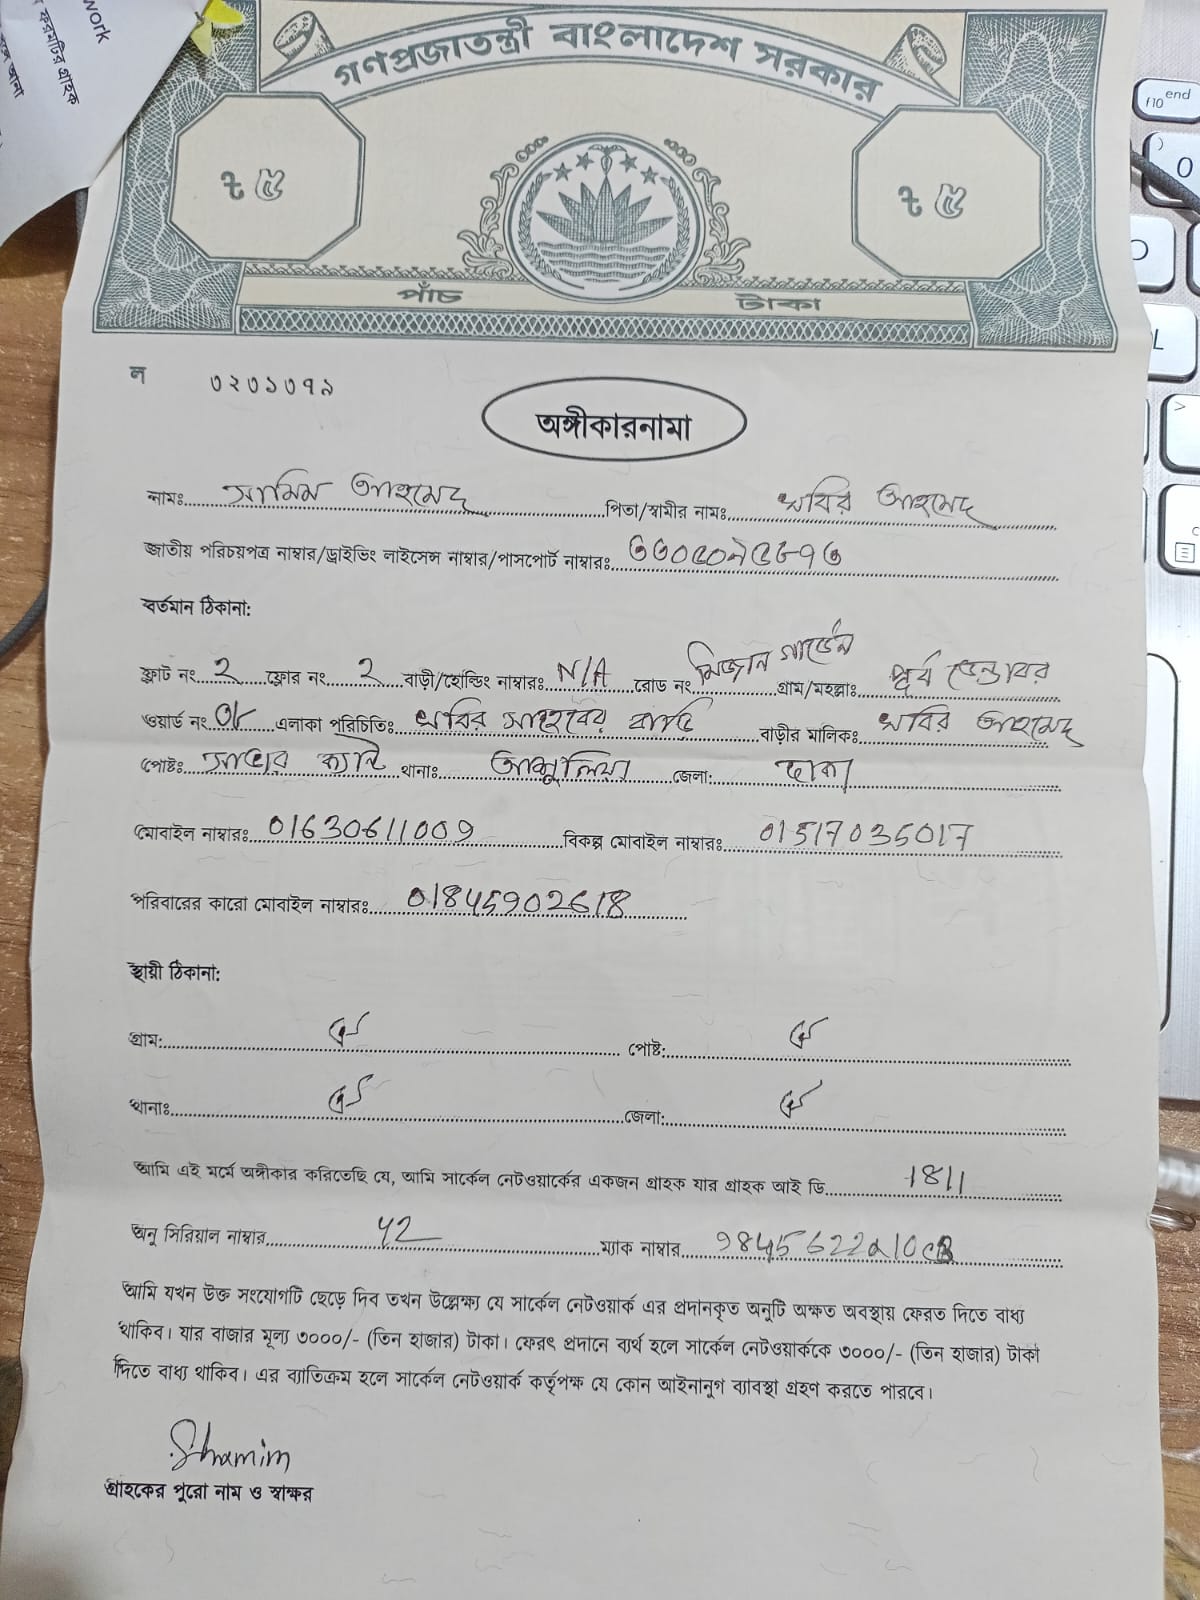 work
ফরমটির গ্রাহক
গণপ্রজাতন্ত্রী বাংলাদেশ সরকার
৳ ৫ ৳ ৫
পাঁচ টাকা
end
f10
ন ৩২৩১৩৭৯
অঙ্গীকারনামা
নামঃ সামিম আহমেদ পিতা/স্বামীর নামঃ খবির আহমেদ
জাতীয় পরিচয়পত্র নাম্বার/ড্রাইভিং লাইসেন্স নাম্বার/পাসপোর্ট নাম্বারঃ
বর্তমান ঠিকানা:
ফ্লাট নং ২ ফ্লোর নং ২ বাড়ী/হোল্ডিং নাম্বারঃ N/A রোড নং মিজান গার্ডেন গ্রাম/মহল্লাঃ পূর্ব
ওয়ার্ড নং ০৮ এলাকা পরিচিতিঃ খবির সাহেবের বাড়ি বাড়ীর মালিক: খবির আহমেদ
পোষ্টঃ সাভার ক্যান্ট থানাঃ আশুলিয়া জেলা: ঢাকা
মোবাইল নাম্বারঃ 01630611009 বিকল্প মোবাইল নাম্বারঃ 01517035017
পরিবারের কারো মোবাইল নাম্বারঃ 01845902618
স্থায়ী ঠিকানা:
গ্রাম: ঐ পোষ্ট: ঐ
থানাঃ ঐ জেলা: ঐ
আমি এই মর্মে অঙ্গীকার করিতেছি যে, আমি সার্কেল নেটওয়ার্কের একজন গ্রাহক যার গ্রাহক আই ডি 1811
অনু সিরিয়াল নাম্বার 42 ম্যাক নাম্বার
আমি যখন উক্ত সংযোগটি ছেড়ে দিব তখন উল্লেক্ষ্য যে সার্কেল নেটওয়ার্ক এর প্রদানকৃত অনুটি অক্ষত অবস্থায় ফেরত দিতে বাধ্য
থাকিব। যার বাজার মূল্য ৩০০০/- (তিন হাজার) টাকা। ফেরৎ প্রদানে ব্যর্থ হলে সার্কেল নেটওয়ার্ককে ৩০০০/- (তিন হাজার) টাকা
দিতে বাধ্য থাকিব। এর ব্যাতিক্রম হলে সার্কেল নেটওয়ার্ক কর্তৃপক্ষ যে কোন আইনানুগ ব্যাবস্থা গ্রহণ করতে পারবে।
Shamim
গ্রাহকের পুরো নাম ও স্বাক্ষর